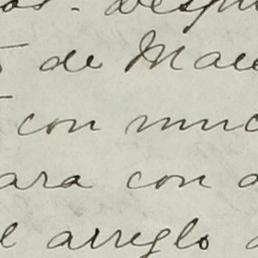 os. Despu
de Mae
con muc
ara con a
l arreglo